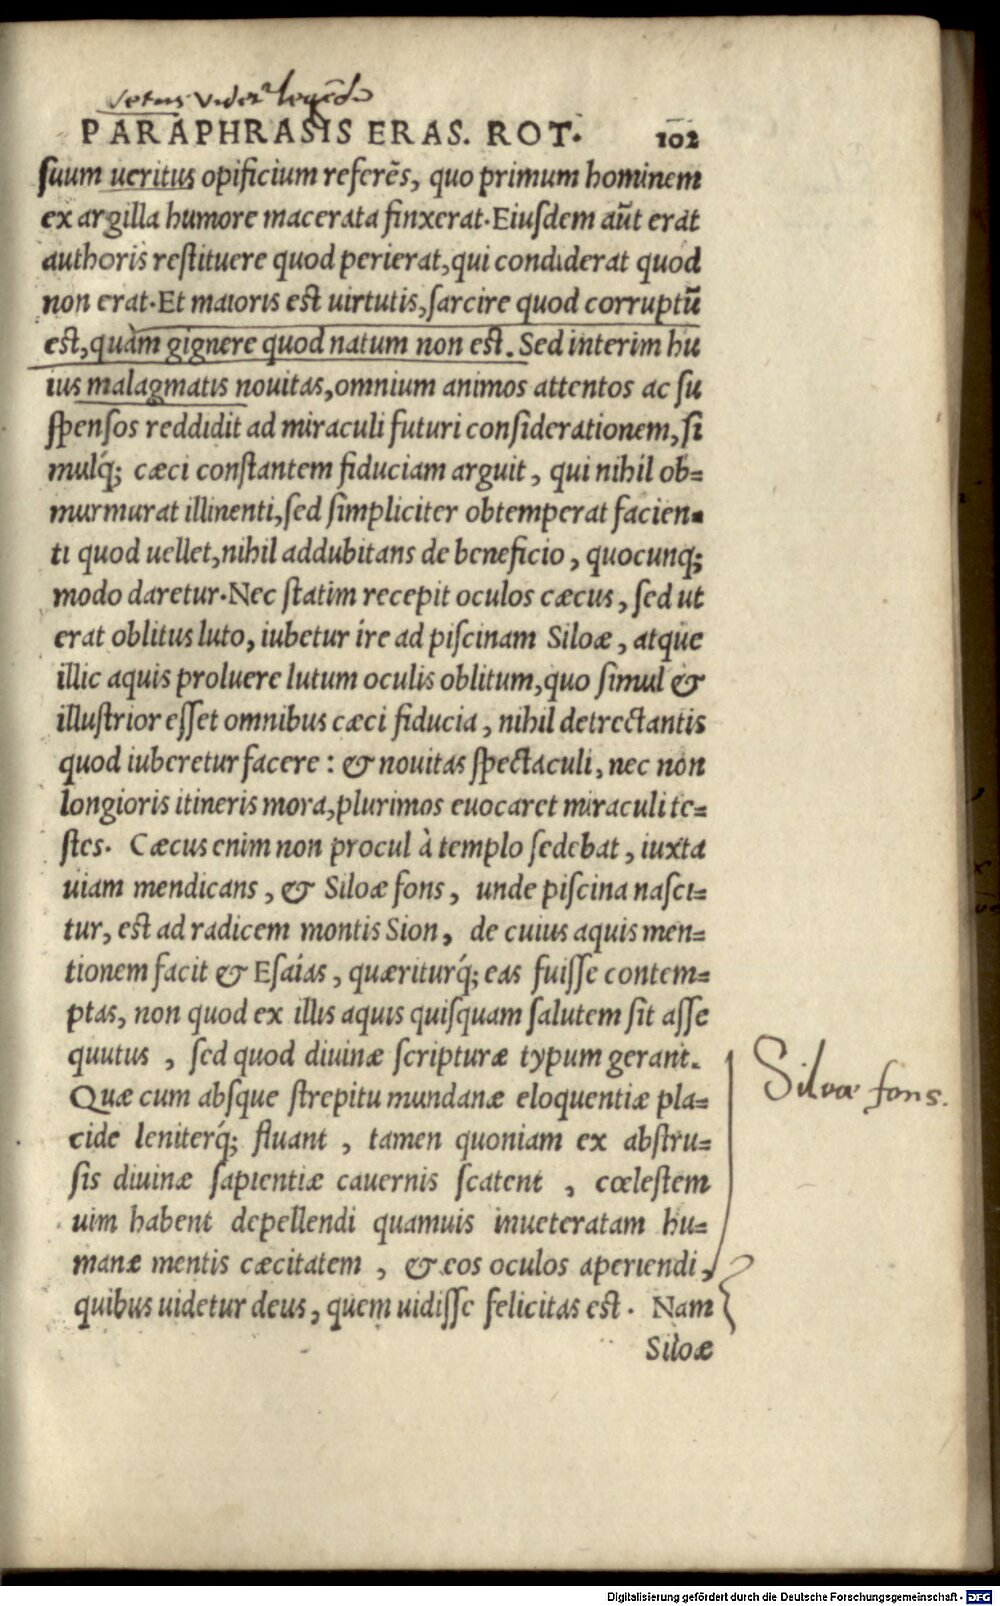 vetus videt' legēdū
PARAPHRASIS ERAS. ROT. 102
suum ueritus opificium referēs, quo primum hominem
ex argilla humore macerata finxerat. Eiusdem aūt erat
authoris restituere quod perierat, qui condiderat quod
non erat. Et maioris est uirtutis, sarcire quod corruptū
est, quàm gignere quod natum non est. Sed interim hu
ius malagmatis nouitas, omnium animos attentos ac su
spensos reddidit ad miraculi futuri considerationem, si
mulq́; cæci constantem fiduciam arguit, qui nihil ob=
murmurat illinenti, sed simpliciter obtemperat facien=
ti quod uellet, nihil addubitans de beneficio, quocunq;
modo daretur. Nec statim recepit oculos cæcus, sed ut
erat oblitus luto, iubetur ire ad piscinam Siloæ, atque
illic aquis proluere lutum oculis oblitum, quo simul &
illustrior esset omnibus cæci fiducia, nihil detrectantis
quod iuberetur facere: & nouitas spectaculi, nec non
longioris itineris mora, plurimos euocaret miraculi te=
stes. Cæcus enim non procul à templo sedebat, iuxta
uiam mendicans, & Siloæ fons, unde piscina nasci=
tur, est ad radicem montis Sion, de cuius aquis men=
tionem facit & Esaías, quæriturq́; eas fuisse contem=
ptas, non quod ex illis aquis quisquam salutem sit asse
quutus, sed quod diuinæ scripturæ typum gerant.
Siloæ fons.
Quæ cum absque strepitu mundanæ eloquentiæ pla=
cide leniterq́; fluant, tamen quoniam ex abstru=
sis diuinæ sapientiæ cauernis scatent, cœlestem
uim habent depellendi quamuis inueteratam hu=
manæ mentis cæcitatem, & eos oculos aperiendi,
quibus uidetur deus, quem uidisse felicitas est. Nam
Siloæ
Digitalisierung gefördert durch die Deutsche Forschungsgemeinschaft - DFG